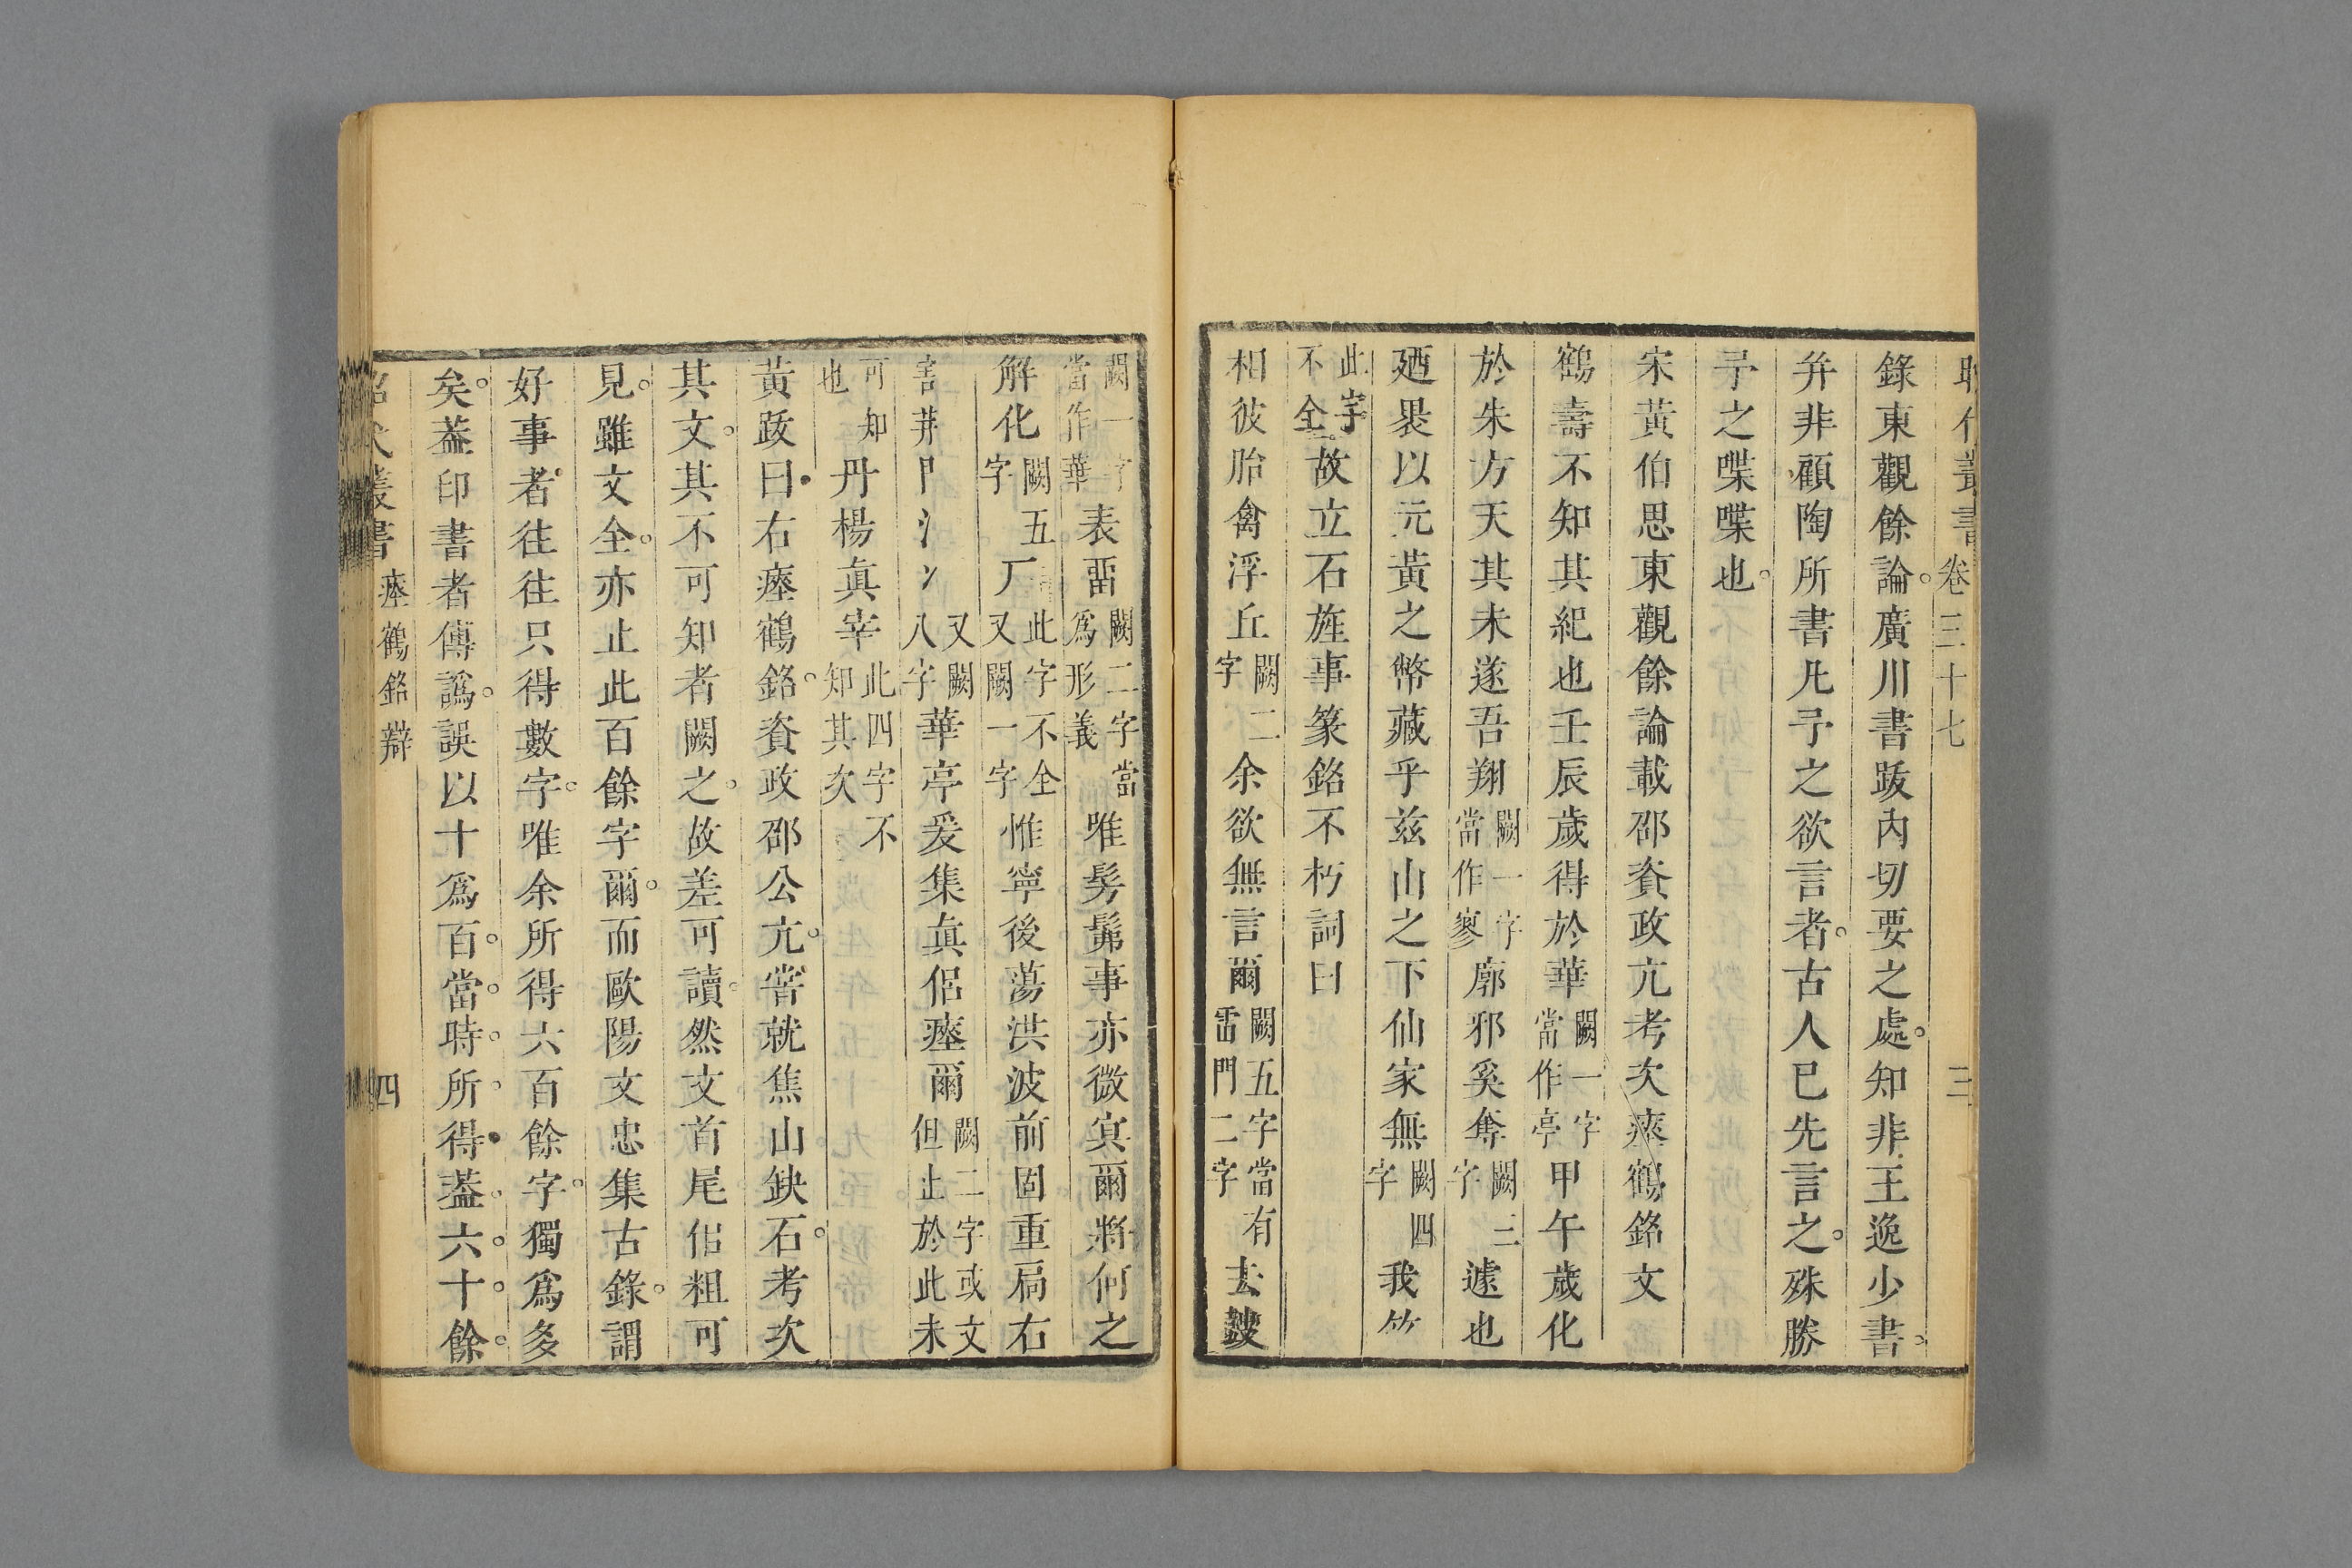 昭代叢書卷三十七 三
錄東觀餘論廣川書跋內切要之處知非王逸少書
幷非顧陶所書凡予之欲言者古人已先言之殊勝
予之喋喋也
宋黃伯思東觀餘論載邵資政亢考次瘞鶴銘文
鶴壽不知其紀也壬辰歲得於華闕一字當作亭甲午歲化
於朱方天其未遂吾翔闕一字當作寥廓邪奚奪闕三字遽也
廼裹以元黃之幣藏乎兹山之下仙家無闕四字我竹
此字不全故立石旌事篆銘不朽詞曰
相彼胎禽浮丘闕二字余欲無言爾闕五字當有雷門二字去鼓
闕一字當作華表留闕二字當爲形義唯髣髴事亦微冥爾將何之
解化闕五字厂此字不全又闕一字惟寧後蕩洪波前固重扃右
割荆門氵冫又闕八字華亭爰集眞侶瘞爾闕二字或文但止於此未
可知也丹楊眞宰此四字不知其次
黃跋曰右瘞鶴銘資政邵公亢嘗就焦山缺石考次
其文其不可知者闕之故差可讀然文首尾佀粗可
見雖文全亦止此百餘字爾而歐陽文忠集古錄謂
好事者往往只得數字唯余所得六百餘字獨爲多
矣葢印書者傳譌誤以十爲百當時所得葢六十餘
昭代叢書 瘞鶴銘辯 四